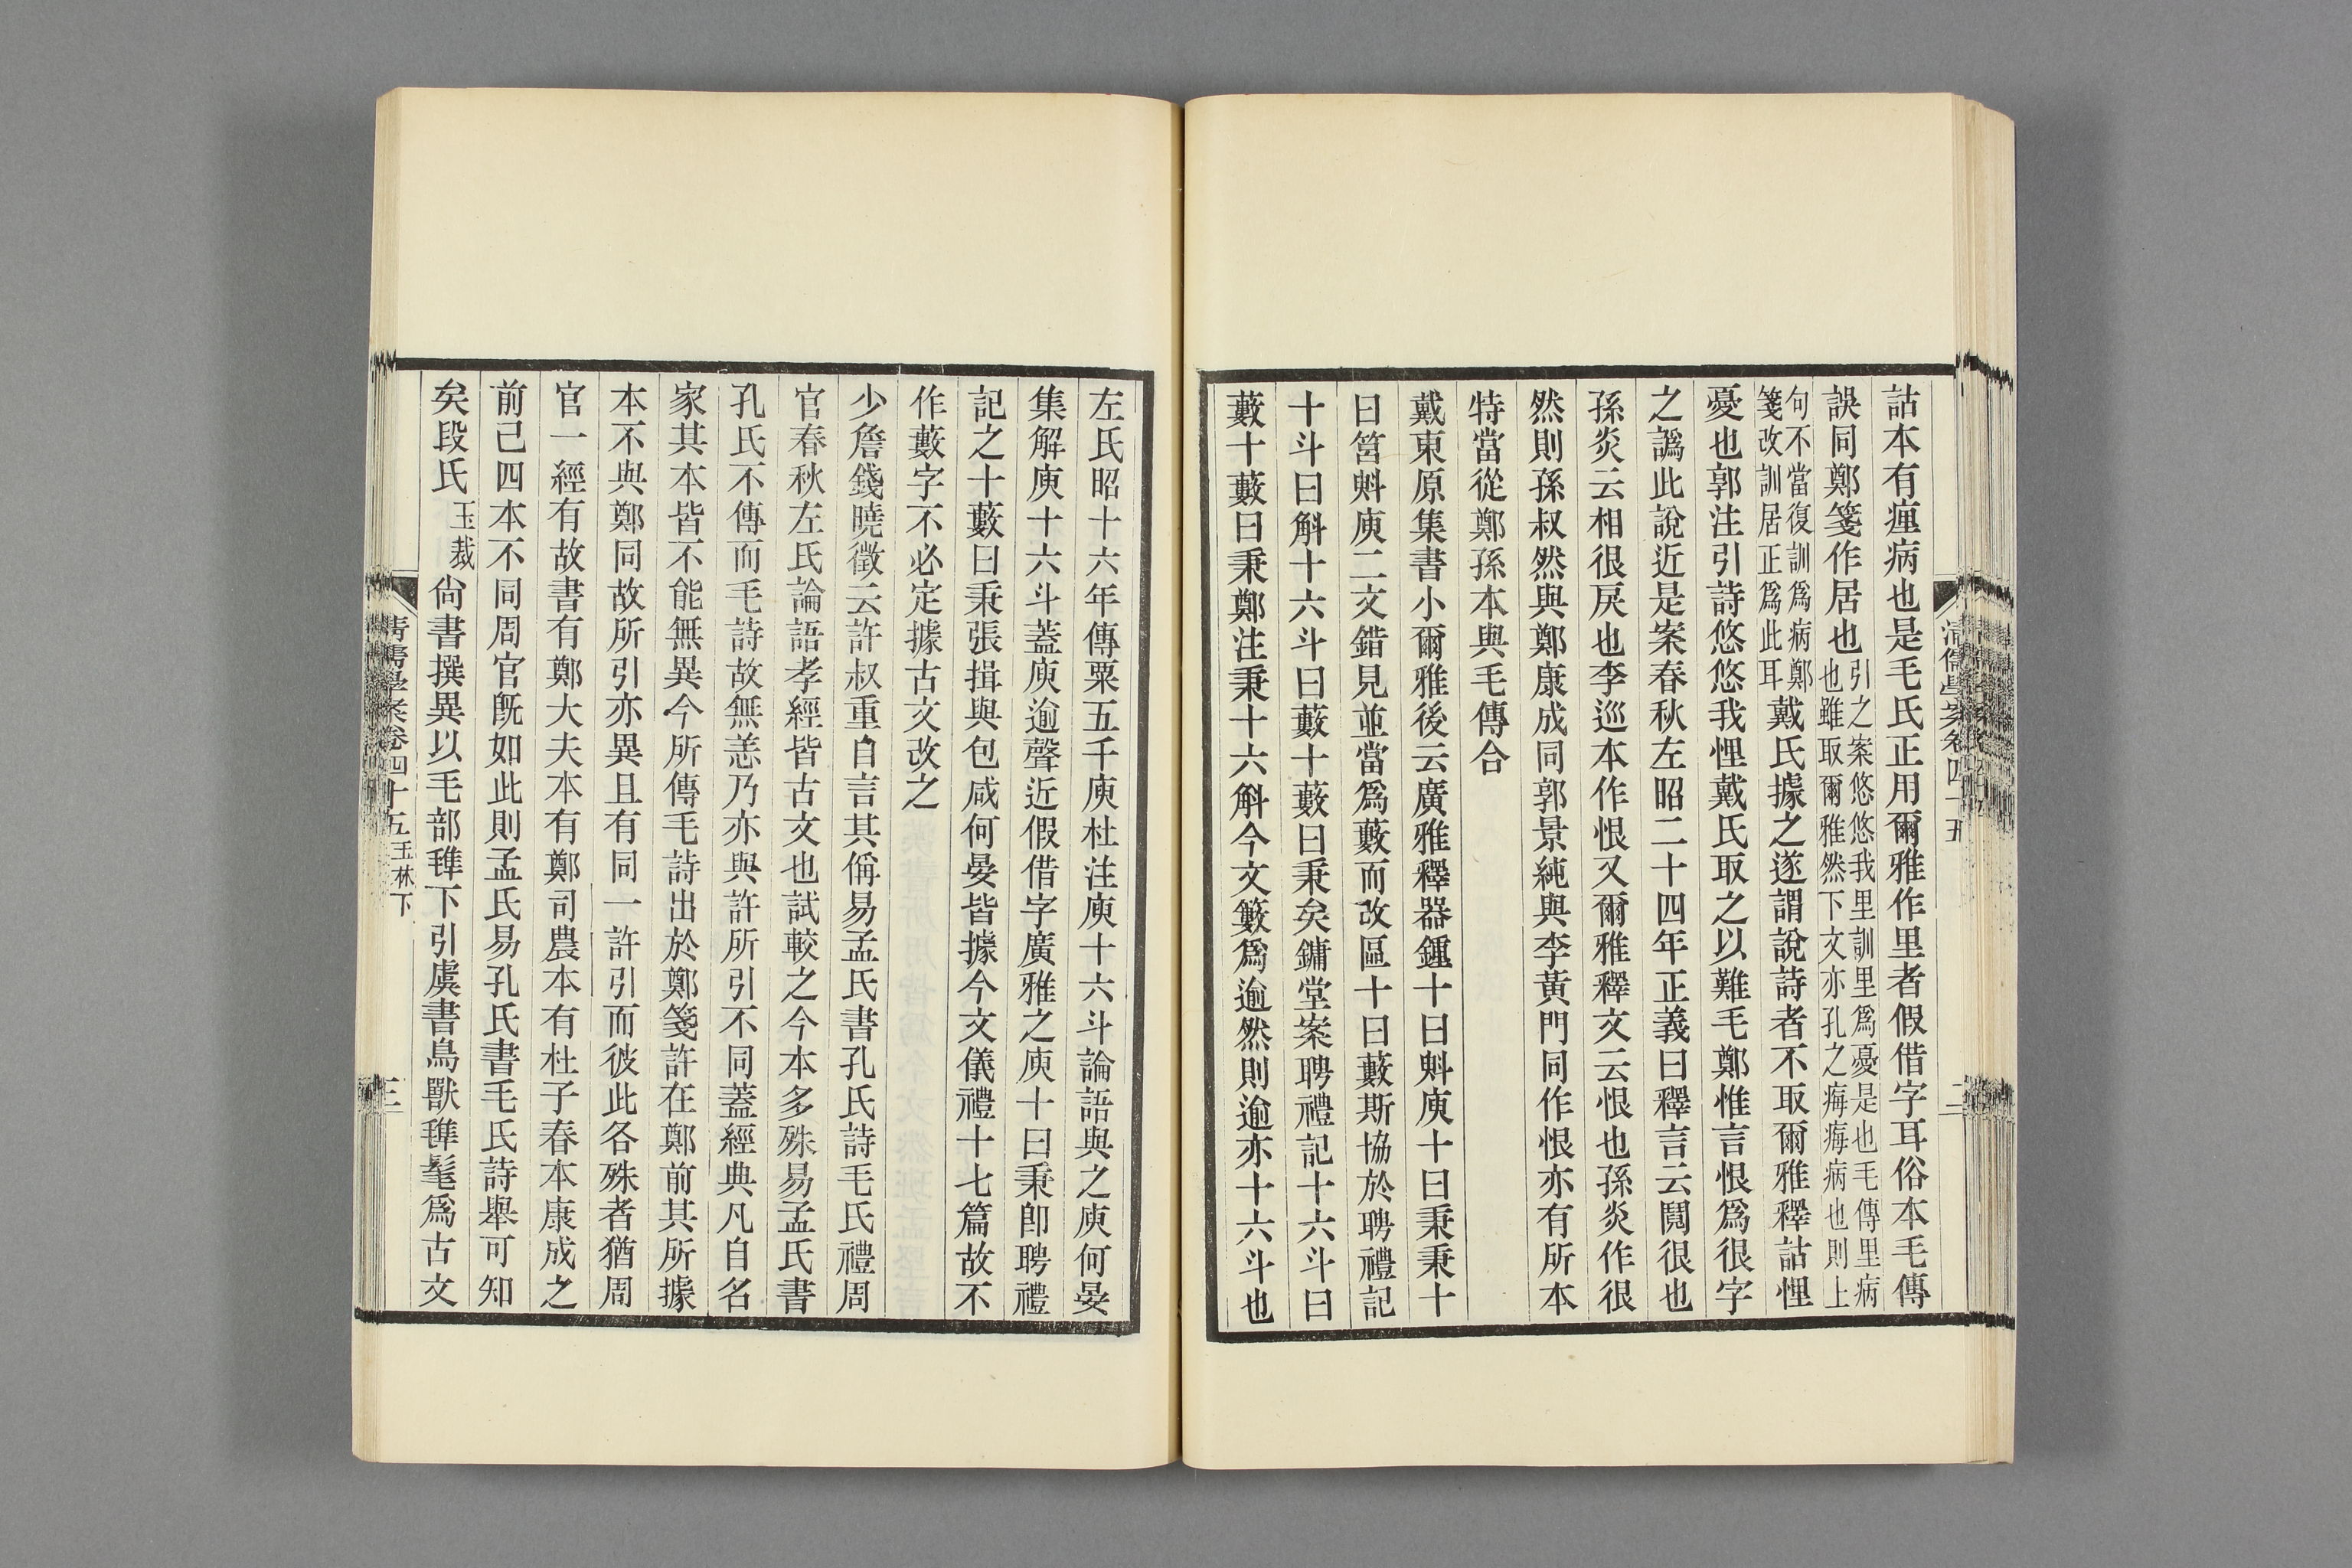 詁本有瘽病也是毛氏正用爾雅作里者假借字耳俗本毛傳
誤同鄭箋作居也引之案悠悠我里訓里爲憂是也毛傳里病也雖取爾雅然下文亦孔之痗痗病也則上
句不當復訓爲病鄭箋改訓居正爲此耳戴氏據之遂謂說詩者不取爾雅釋詁悝
憂也郭注引詩悠悠我悝戴氏取之以難毛鄭惟言恨爲很字
之譌此說近是案春秋左昭二十四年正義曰釋言云鬩很也
孫炎云相很戾也李巡本作恨又爾雅釋文云恨也孫炎作很
然則孫叔然與鄭康成同郭景純與李黃門同作恨亦有所本
特當從鄭孫本與毛傳合
戴東原集書小爾雅後云廣雅釋器鍾十曰㪺庾十曰秉秉十
曰筥㪺庾二文錯見並當爲藪而改區十曰藪斯協於聘禮記
十斗曰斛十六斗曰藪十藪曰秉矣鏞堂案聘禮記十六斗曰
藪十藪曰秉鄭注秉十六斛今文籔爲逾然則逾亦十六斗也
清儒學案卷四十五
二
左氏昭十六年傳粟五千庾杜注庾十六斗論語與之庾何晏
集解庾十六斗蓋庾逾聲近假借字廣雅之庾十曰秉卽聘禮
記之十藪曰秉張揖與包咸何晏皆據今文儀禮十七篇故不
作藪字不必定據古文改之
少詹錢曉徵云許叔重自言其偁易孟氏書孔氏詩毛氏禮周
官春秋左氏論語孝經皆古文也試較之今本多殊易孟氏書
孔氏不傳而毛詩故無恙乃亦與許所引不同蓋經典凡自名
家其本皆不能無異今所傳毛詩出於鄭箋許在鄭前其所據
本不與鄭同故所引亦異且有同一許引而彼此各殊者猶周
官一經有故書有鄭大夫本有鄭司農本有杜子春本康成之
前已四本不同周官旣如此則孟氏易孔氏書毛氏詩舉可知
矣段氏玉裁尙書撰異以毛部𣬛下引虞書鳥獸𣬛髦爲古文
清儒學案卷四十五玉林下
三